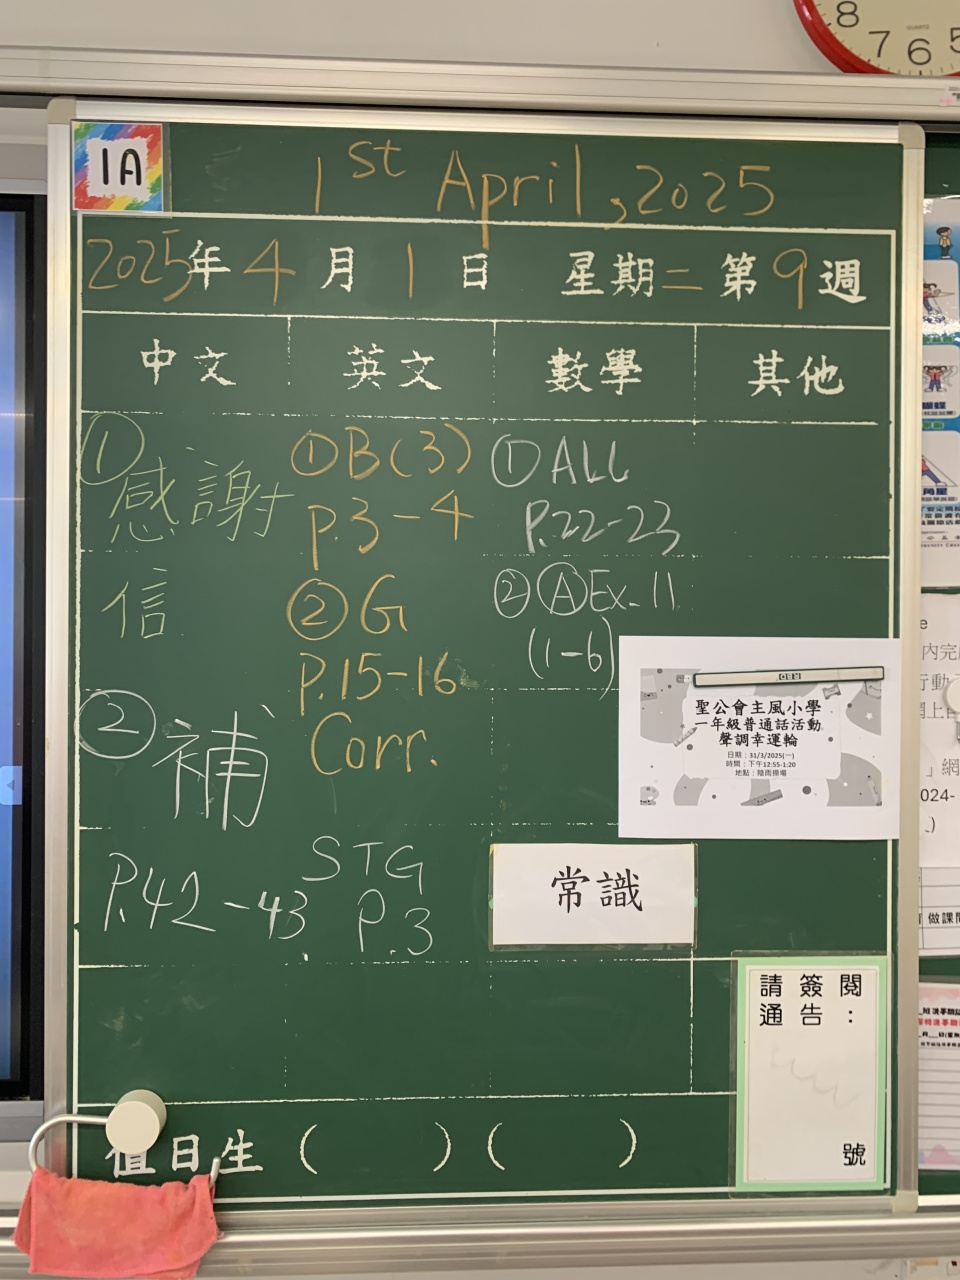 8
7
6
5
1A
1st April, 2025
2025年4月1日 星期二 第9週
中文 英文 數學 其他
①感謝
信
②補
P.42-43
①B(3)
P.3-4
②G
P.15-16
Corr.
STG
P.3
①ALL
P.22-23
②ⒶEx. 11
(1-6)
聖公會主風小學
一年級普通話活動
聲調幸運輪
日期：31/3/2025(一)
時間：下午12:55-1:20
地點：陰雨操場
常識
請簽閱
通告：
號
值日生 ( ) ( )
角星
內完
行動
網上
」網
024-
做課